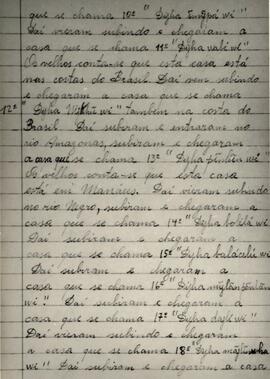 que se chama 10ª " Diha
Daí vieram subindo e chegaram a
casa que se chama 11ª "Diha walé wi"
Os velhos conta-se que esta casa está
nas costas do Brasil. Daí vem subindo
e chegaram a casa que se chama
12ª "Diha wi" também na costa do
Brasil. Daí subiram e entraram no
rio Amazonas, subiram e chegaram
a casa que se chama 13ª "Diha wi"
Os velhos conta-se que esta casa
está em Manáus. Daí vieram subindo
no rio Negro, subiram e chegaram a
casa que se chama 14ª "Diha wi"
Daí subiram e chegaram a
casa que se chama 15ª "Diha wi
Daí subiram e chegaram a
casa que se chama 16ª "Diha
wi". Daí subiram e chegaram a
casa que se chama 17ª "Diha wi"
Daí vieram subindo e chegaram
a casa que se chama 18ª "Diha
wi" Daí subiram e chegaram a casa